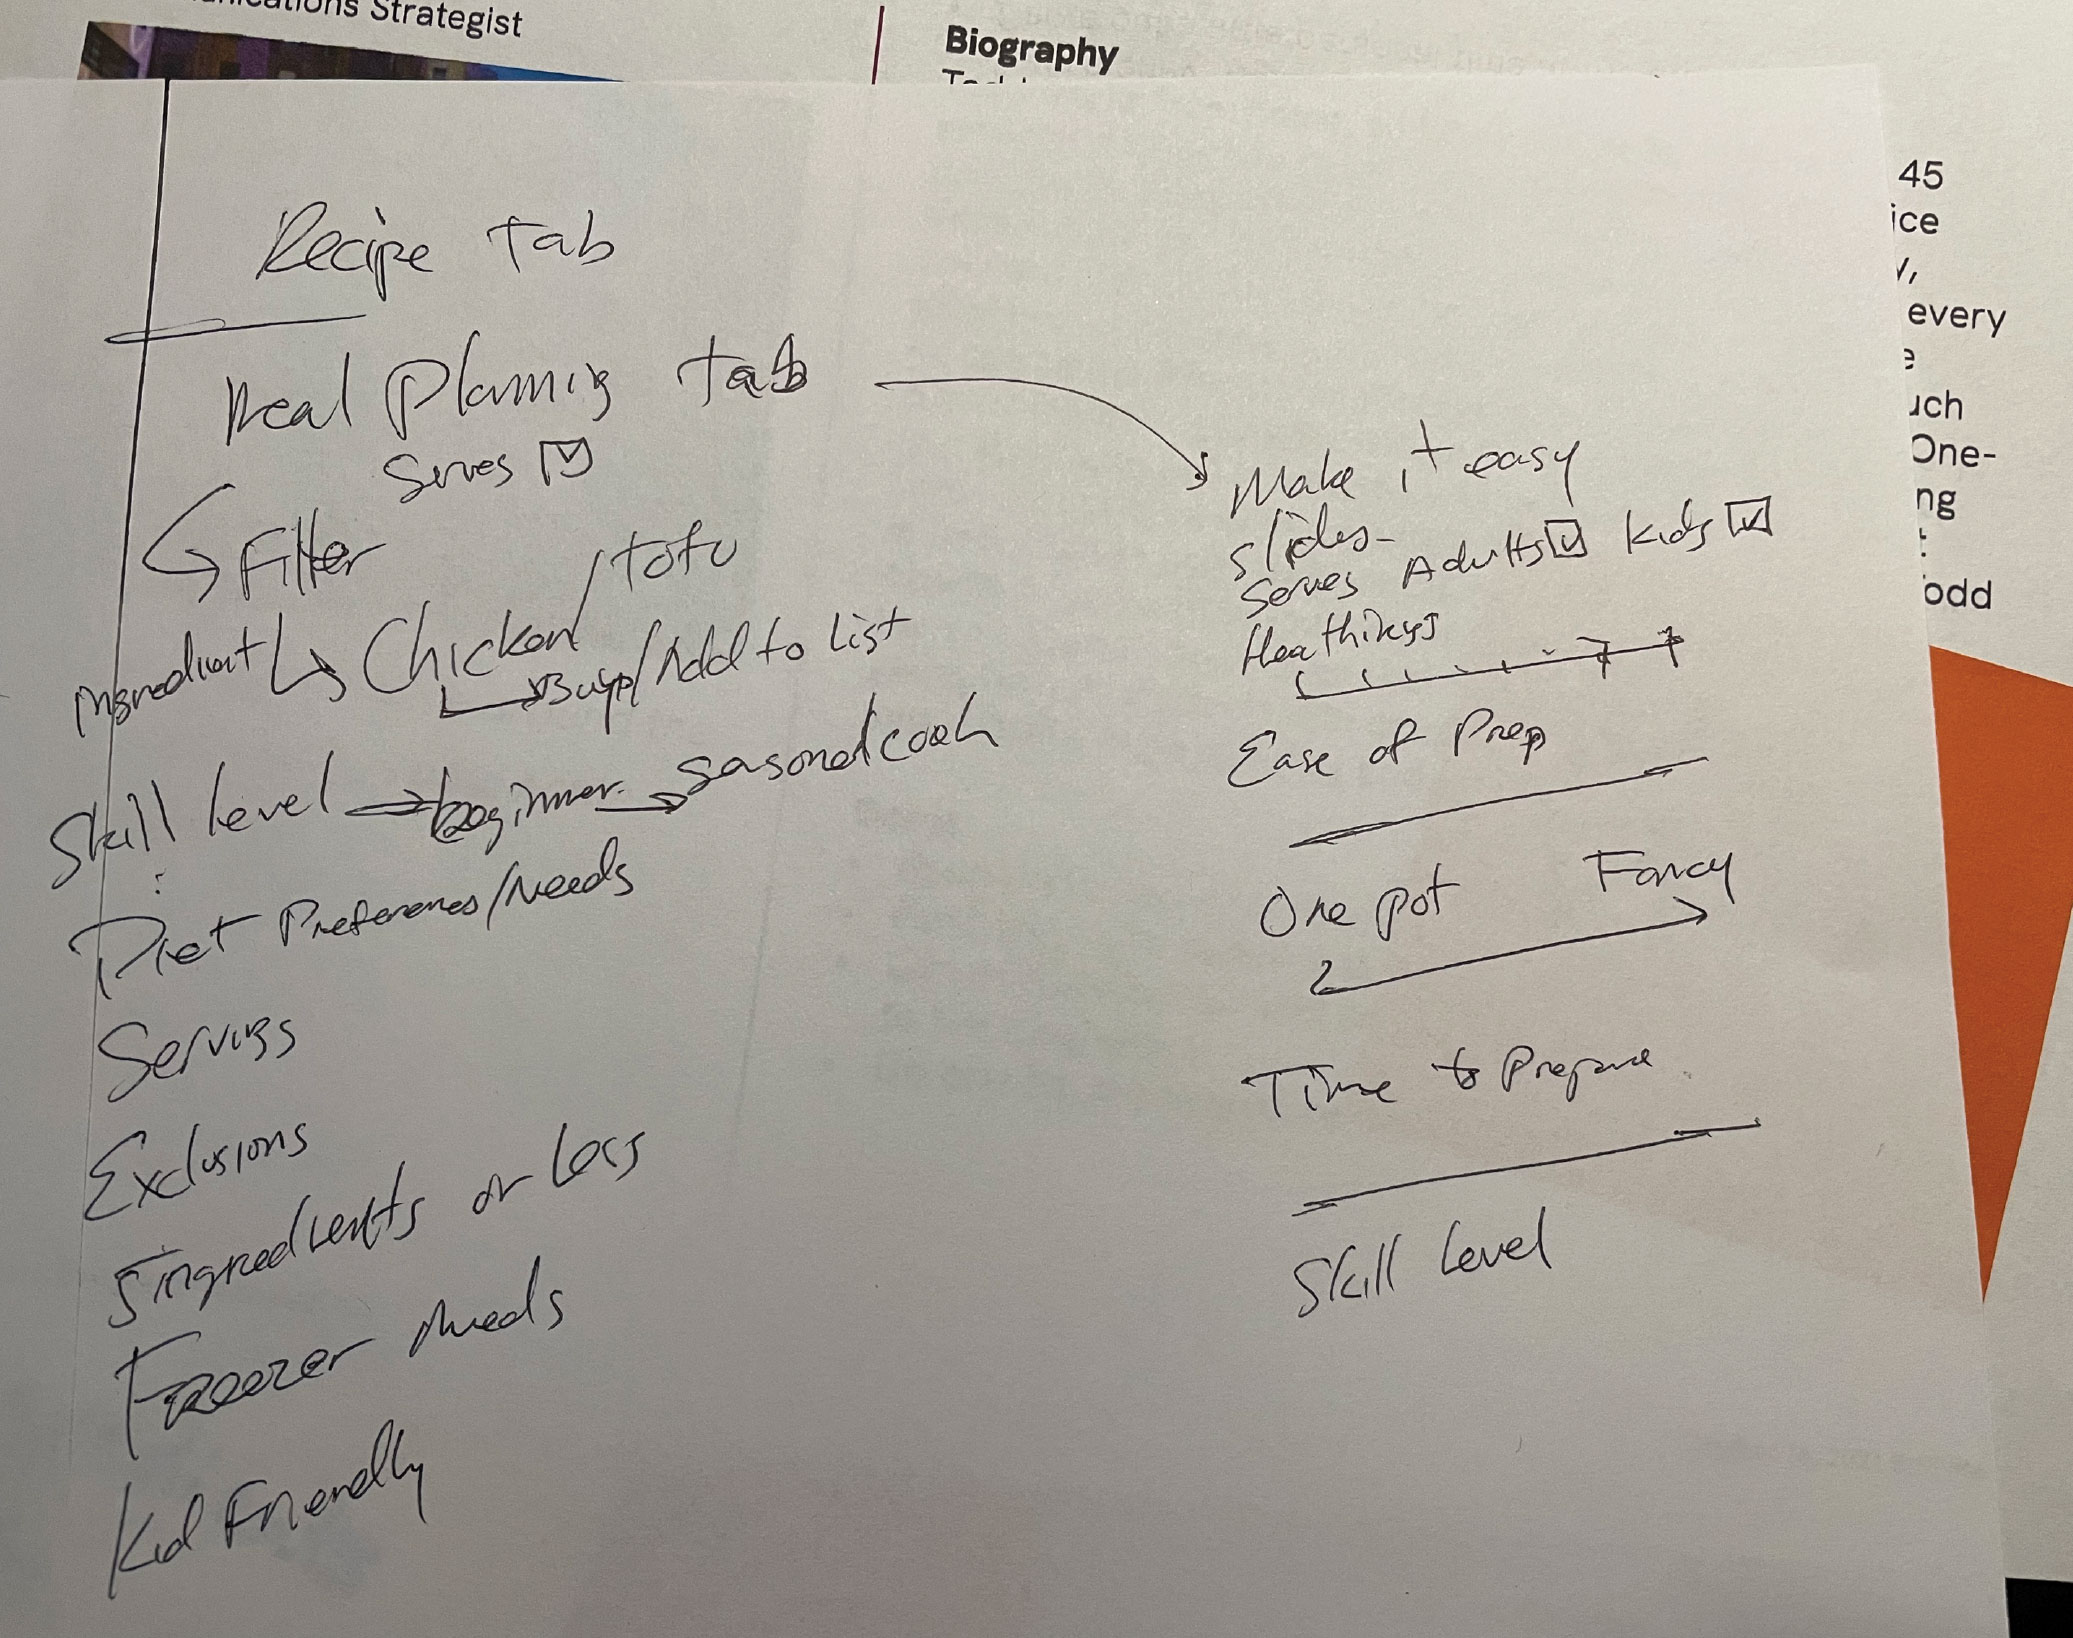 Communications Strategist
Biography
45
ice
y,
every
e
uch
One-
ng
odd
Recipe Tab
Meal Planning tab
Serves
Filter
Ingredient Chicken/Tofu
Buy/Add to List
Skill level beginner sasoned cook
Diet Preferences/Needs
Servings
Exclusions
5 ingredients or less
Freezer Meals
Kid Friendly
Make it easy
slides-
Serves Adults Kids
Ease of Prep
One pot Fancy
Time to Prepare
Skill level